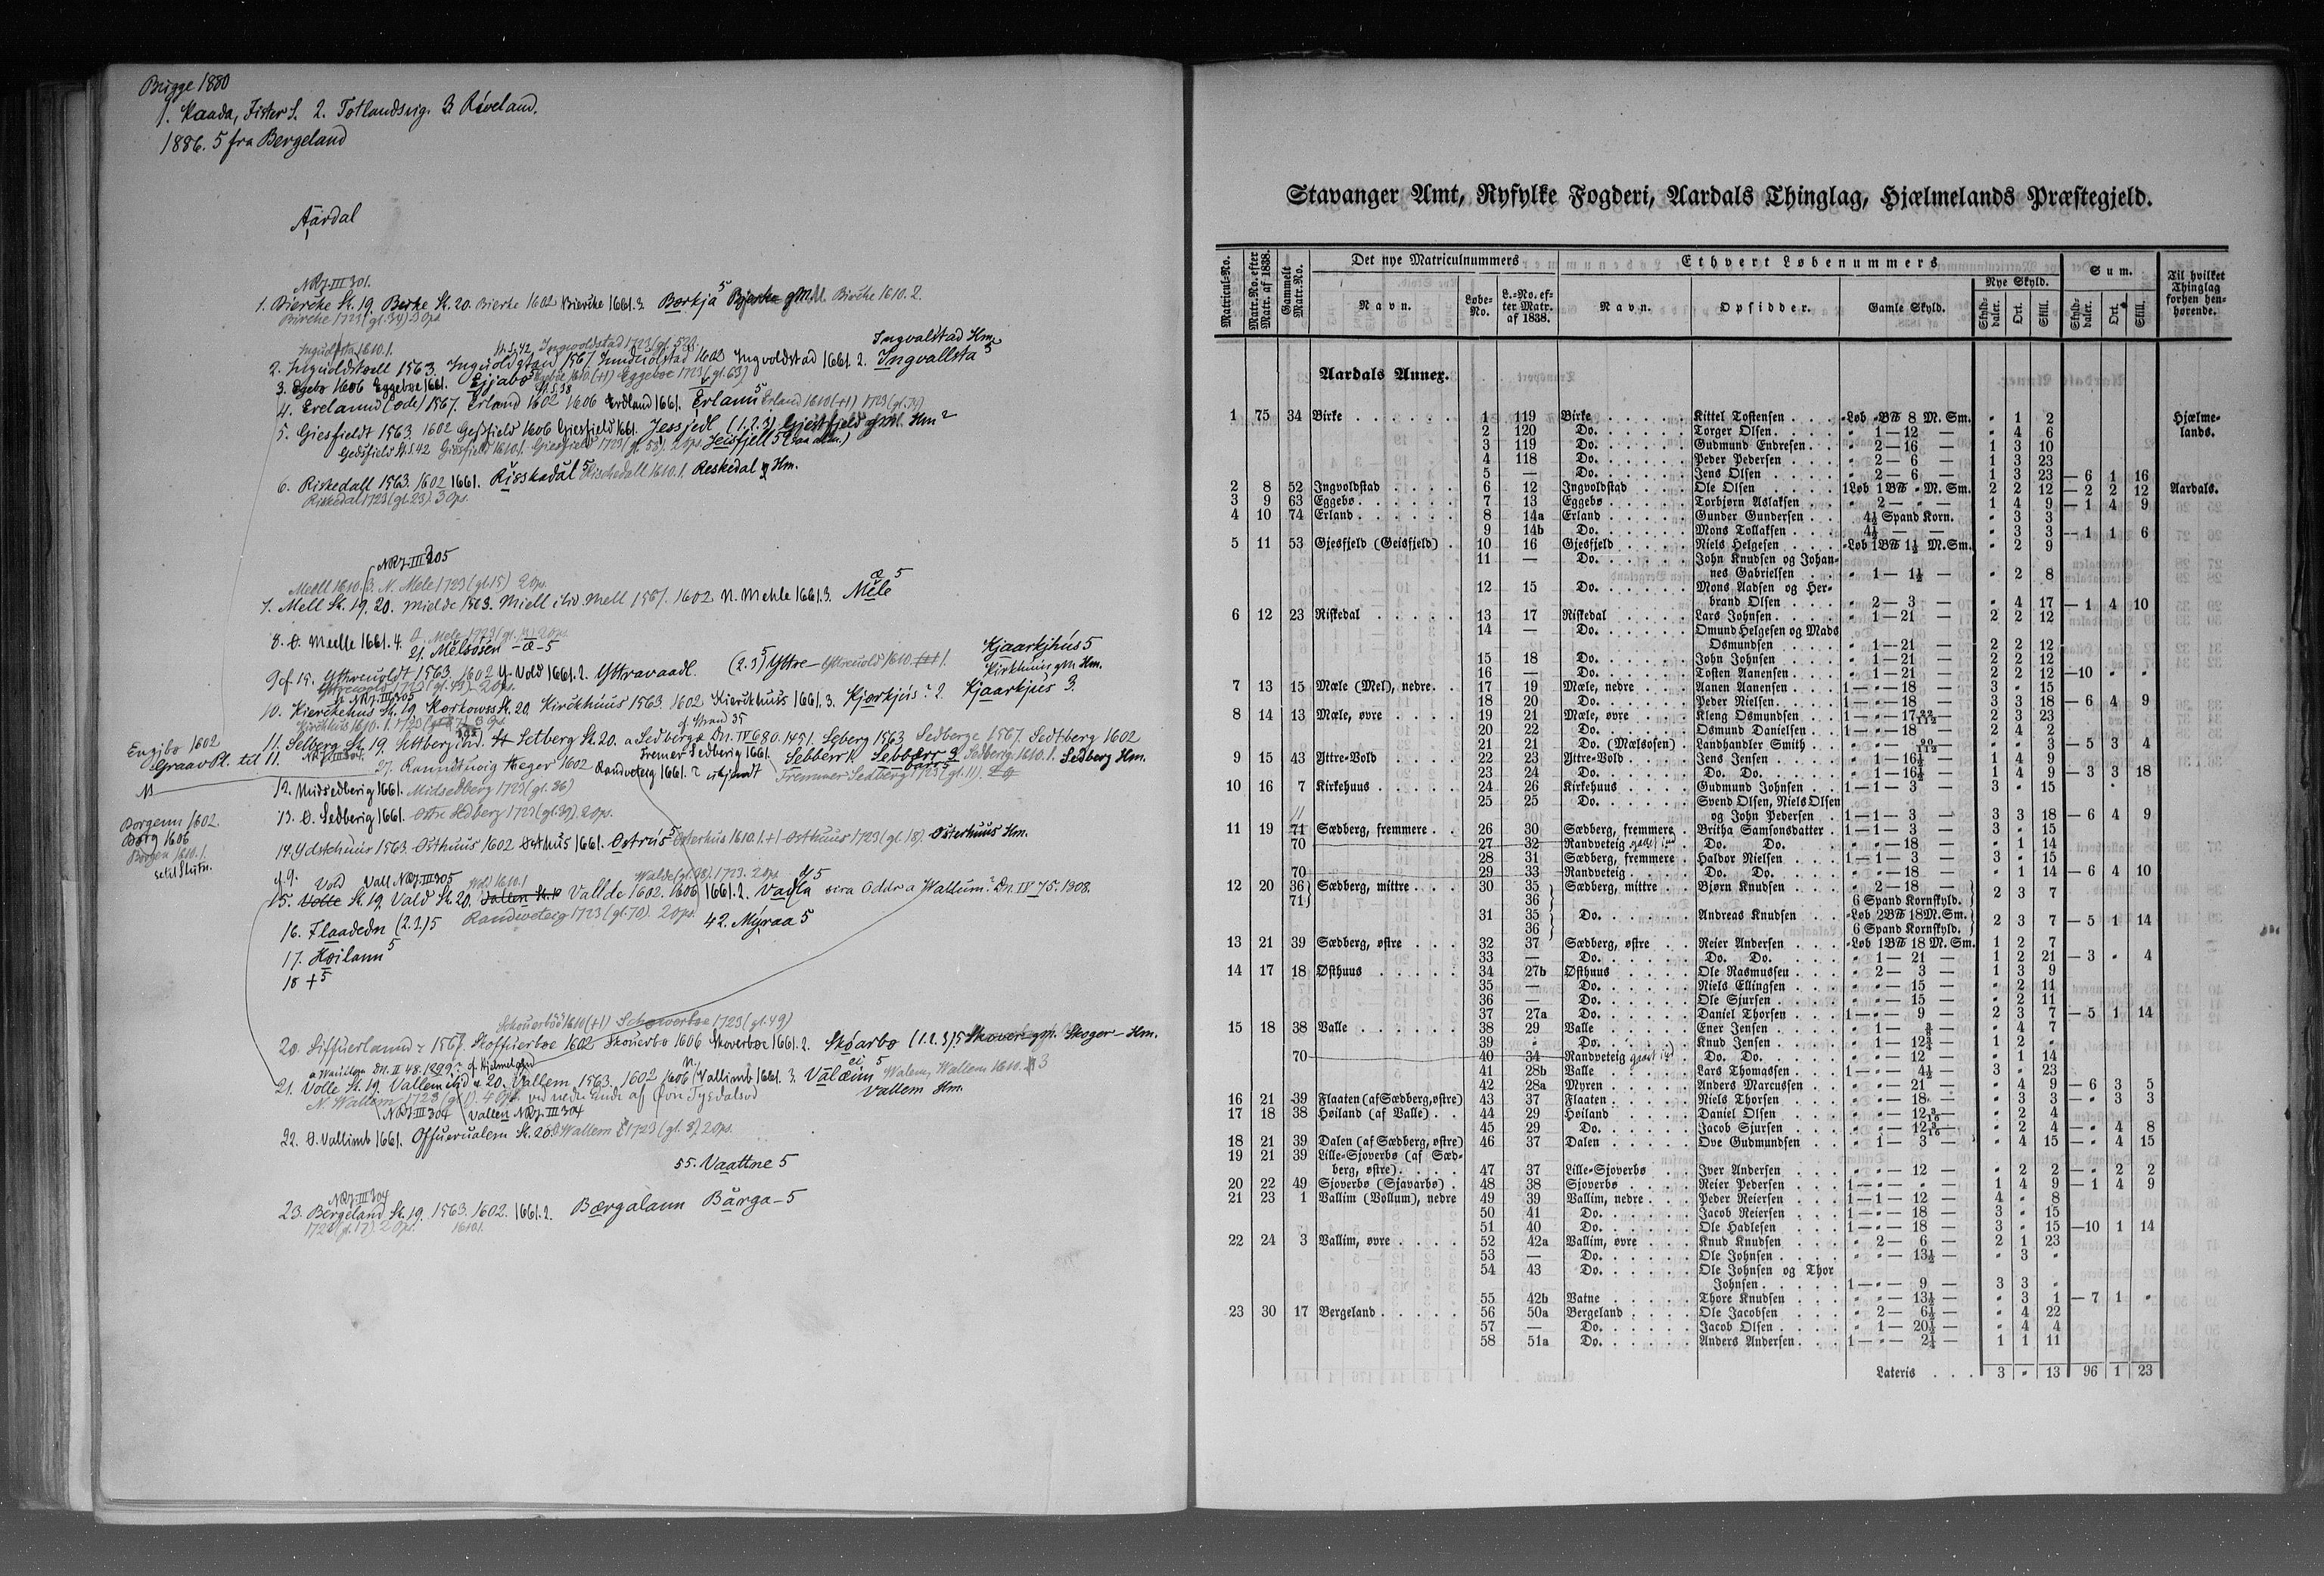 Brigge 1880
1. Kaada, Fister S. 2. Totlandsvig. 3 Riveland.
1886. 5 fra Bergeland
Aardal
NRJ. III 301.
1. Biercke St. 19. Berke St. 20. Bierke 1602 Biercke 1661. 3. Bœrkja 5 gM. Birche 1610. 2.
Birche 1723 (gl. 34) 3 Ops.
Ingvalstad Hm.
2. Inguoldstvell 1563. 1567 1602 Inguoldstad 1661. 2. Ingvallsta 5
3. Egebø 1606 Eggebøe 1661. Ejjabø 5 Eggebøe 1723 (gl. 63)
4. Erelannd (øde) 1567. Erland 1602 1606 Erdland 1661. Erlann 5 Erland 1610 (+1) 1723 (gl. 74)
5. Giesfieldt 1563. 1602 Gesfield 1606 Giesfield 1661. Jessjedl (1.2.3) Hm 2
6. Riskedall 1563. 1602 1661. Risskadal 5 Rischedall 1610. 1. Reskedal Hm.
Riskedal 1723 (gl. 23). 3 Ops.
NRJ. III 305
Mell 1610. 3. N. Mele 1723 (gl. 15) 2 Ops.
7. Mell St. 19. 20. Mell 1567. 1602 N. Mehle 1661. 3. Mele 5
8. Ø. Meelle 1661. 4. Ø. Mele 1723
21. Melsosen -æ- 5
Kjaarkjhus 5
9 cf 15. Yttreuoldt 1563. 1602 Y. Vold 1661. 2. Yttravaadl. (2.3) 5 Yttre-
Kirkhuus gM. Hm.
10. Kierckehus St. 19 Kirckhuus 1563. 1602 Kierckhuus 1661. 3. Kjørkjus? 2. Kjaarkjus 3.
Engibø 1602
Graav Pl. til 11.
11. Selberg St. 19. Setberg St. 20. a Sedberga Dn. IV 680. 1451. Seberg 1563 Sedberge 1567. Sedtberg 1602
27. Randtuvig 1602 Randveteig 1661. Sebberrk Sedberg 1610. 1. Sedberg Hm.
12. Midsedberig 1661. Midsedberg 1723 (gl. 36)
13. Ø. Sedberig 1661. Østre Sedberg 1723 (gl. 39). 2 Ops.
Borgenn 1602.
Borg 1606
Borgen 1610. 1.
14. Ydskhuus 1563. Osthuus 1602 Østhus 1661. Ostrus 5 Østerhus 1610. 1. +1 Østhuus 1723 (gl. 18). Østerhuus Hm.
cf. 9. Vold Vall NRJ. III 305
15. Volle St. 19. Vald St. 20. Vallde 1602. 1606 1661. 2. Vadla 5 sira Oddr a Wallum? Dn. IV 75. 1308.
Randveteig 1723 (gl. 70). 2 Ops.
16. Flaadedn (2.3) 5
42. Myraa 5
17. Høilann 5
18 + 5
Skouerbøe 1610 (+1) Schowerbøe 1723 (gl. 49)
20. Siffuerlannd? 1567. Skoffuerboe 1602 Skouerbo 1606 Skoverboe 1661. 2. Skóarbø (1.2.3) 5 Skoger- Hm.
21. Volle St. 19. Vallem 1563. 1602 1606 Vallimb 1661. 3. Valæim 5 Walem, Wallem 1610. 3
N. Wallem 1723 Vallem Hm.
NRJ. III 304 Vallen NRJ. III 304
22. Ø. Vallimb 1661. Offuerualem St. 20. Ø Wallem 1723 (gl. 3). 2 Ops.
55. Vaattne 5
NRJ. III 304
23. Bergeland St. 19. 1563. 1602. 1661. 2. Bœrgalann Bårga- 5
1723 (gl. 17) 2 Ops. 1610. 1.
Stavanger Amt, Ryfylke Fogderi, Aardals Thinglag, Hjælmelands Præstegjeld.
Matricul-No. Matr.No. efter Matr. af 1838. Gammelt Matr.No. Det nye Matriculnummers Ethvert Løbenummers Sum. Til hvilket Thinglag forhen henhørende.
Navn. Løbe-No. L.-No. efter Matr. af 1838. Navn. Opsidder. Gamle Skyld. Nye Skyld. Skylddaler. Ort. Skill. Skylddaler. Ort. Skill.
Aardals Annex.
1 75 34 Birke 1 119 Birke Kittel Tostensen " Løb " BPd 8 M. Sm. " 1 2 Hjælmelands.
2 120 Do. Torger Olsen " 1 — 12 — " 4 6
3 119 Do. Gudmund Endresen " 2 — 16 — 1 3 10
4 118 Do. Peder Pedersen " 2 — 6 — 1 3 23
5 — Do. Jens Olsen " 2 — 6 — 1 3 23 — 6 1 16
2 8 52 Ingvoldstad 6 12 Ingvoldstad Ole Olsen 1 Løb 1 BPd " M. Sm. 2 2 12 — 2 2 12 Aardals.
3 9 63 Eggebø 7 13 Eggebø Torbjørn Aslaksen " 2 — " — 1 4 9 — 1 4 9
4 10 74 Erland 8 14a Erland Gunder Gundersen 4½ Spand Korn. " 3 3
9 14b Do. Mons Tollaksen 4½ — — " 3 3 — 1 1 6
5 11 53 Gjesfjeld (Geisfjeld) 10 16 Gjesfjeld Niels Helgesen " Løb 1 BPd 1½ M. Sm. " 2 9
11 — Do. John Knudsen og Johannes Gabrielsen " 1 — 1½ — " 2 8
12 15 Do. Mons Aadsen og Herbrand Olsen " 2 — 3 — " 4 17 — 1 4 10
6 12 23 Riskedal 13 17 Riskedal Lars Johnsen " 1 — 21 — 2 2 12
14 — Do. Omund Helgesen og Mads Osmundsen " 1 — 21 — 2 2 12
15 18 Do. John Johnsen " 1 — 21 — 2 2 12
16 — Do. Tosten Aanensen " 1 — 21 — 2 2 12 — 10 " "
7 13 15 Mæle (Mel), nedre 17 19 Mæle, nedre Aanen Aanensen 1 — " — 18 — 3 " 15
18 20 Do. Peder Nielsen 1 — " — 18 — 3 3 18 — 6 4 9
8 14 13 Mæle, øvre 19 21 Mæle, øvre Kleng Osmundsen 1 — " — 17 22/112 2 3 23
20 22 Do. Osmund Danielsen 1 — " — 18 — 2 4 2
21 21 Do. (Mælsosen) Landhandler Smith " — " — 90/112 " " 3 — 5 3 4
9 15 43 Yttre-Vold 22 23 Yttre-Vold Jens Jensen " 1 — 16½ — 1 4 9
23 24 Do. Do. Do. " 1 — 16½ — 1 4 9 — 3 3 18
10 16 7 Kirkehuus 24 26 Kirkehuus Gudmund Johnsen 1 — 1 — 3 — 3 " 15
25 25 Do. Svend Olsen, Niels Olsen og John Pedersen 1 — 1 — 3 — 3 3 18 — 6 4 9
11 19 71 Sædberg, fremmere 26 30 Sædberg, fremmere Britha Samsonsdatter 1 — 1 — 3 — 3 " 15
70 27 32 Randveteig Do. Do. " — " — 18 — " 1 14
28 31 Sædberg, fremmere Haldor Nielsen 1 — 1 — 3 — 3 " 15
70 29 33 Randveteig Do. Do. " — " — 18 — " 1 14 — 6 4 10
12 20 36 71 Sædberg, mittre 30 35 36 Sædberg, mittre Bjørn Knudsen " 2 — 18 — 6 Spand Kornskyld. 2 3 7
31 35 36 Do. Andreas Knudsen " Løb 2 BPd 18 M. Sm. 6 Spand Kornskyld. 2 3 7 — 5 1 14
13 21 39 Sædberg, østre 32 37 Sædberg, østre Reier Andersen " Løb 1 BPd 18 M. Sm. 1 2 7
33 — Do. Do. Do. " 1 — 21 — 1 2 21 — 3 " 4
14 17 18 Østhuus 34 27b Østhuus Ole Rasmussen " 2 — 3 — 1 3 9
35 — Do. Niels Ellingsen " " — 15 — " 2 11
36 — Do. Ole Sjursen " " — 15 — " 2 11
37 27a Do. Daniel Thorsen 1 — " — 9 — 2 3 7 — 5 1 14
15 18 38 Valle 38 29 Valle Ener Jensen " 1 — ¾ — " 4 7
39 " Do. Knud Jensen " 1 — 12¾ — 1 2 "
70 40 34 Randveteig Do. Do. " " — 12 — " 1 14
41 28b Valle Lars Thomassen 1 — " — 4½ — 3 " 23
42 28a Myren Anders Marcussen " " — 21 — " 4 9 — 6 3 5
16 21 39 Flaaten (af Sædberg, østre) 43 37 Flaaten Niels Thorsen " " — 18 — " 3 3 — " 3 3
17 18 38 Høiland (af Valle) 44 29 Høiland Daniel Olsen " " — 12 3/16 — " 2 4
45 29 Do. Jacob Sjursen " " — 12 3/16 — " 2 4 — " 4 8
18 21 39 Dalen (af Sædberg, østre) 46 37 Dalen Ove Gudmundsen " 1 — 3 — " 4 15 — " 4 15
19 21 39 Lille-Sjoverbø (af Sædberg, østre) 47 37 Lille-Sjoverbø Iver Andersen " " — 12 — " 2 2 — " 2 2
20 22 49 Sjoverbø (Sjavarbø) 48 38 Sjoverbø Reier Pedersen 1 — " — " — 1 4 9 — 1 4 9
21 23 1 Vallim (Vollum), nedre 49 39 Vallim, nedre Peder Reiersen 1 — 1 — 12 — 4 " 8
50 41 Do. Jacob Reiersen 1 — " — 18 — 3 " 15
51 40 Do. Ole Hadlesen 1 — " — 18 — 3 " 15 — 10 1 14
22 24 3 Vallim, øvre 52 42a Vallim, øvre Knud Knudsen " 2 — 6 — 2 1 23
53 — Do. Ole Johnsen " " — 13½ — " 3 "
54 43 Do. Ole Johnsen og Thor Johnsen 1 — " — 9 — 3 3 "
55 42b Vatne Thore Knudsen " " — 13½ — " 3 1 — 7 1 "
23 30 17 Bergeland 56 50a Bergeland Ole Jacobsen " 2 — 6¼ — " 4 22
57 — Do. Jacob Olsen " 1 — 20½ — " 4 4
58 51a Do. Anders Andersen 1 — " — 2¼ — 1 1 11
Lateris 3 " 13 96 1 23